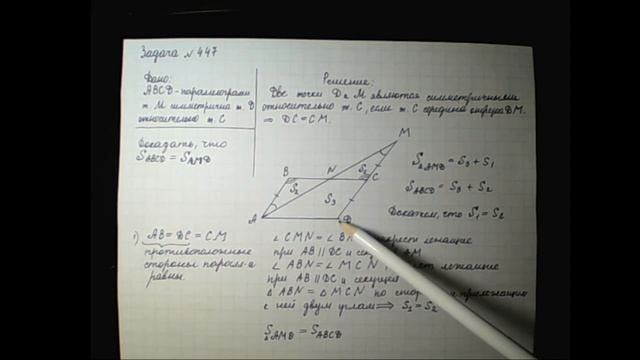 Задача №447
Дано:
ABCD - параллелограмм
т. M симметрична т. D
относительно т. C
Доказать, что
S ABCD = S AMD
Решение:
Две точки D и M являются симметричными
относительно т. C, если т. C середина отрезка DM.
⇒ DC = CM.
M
B N S1 C
S2
S3
A D
S AMD = S3 + S1
S ABCD = S3 + S2
Докажем, что S1 = S2
1) AB = DC = CM
противоположные
стороны паралл-а
равны.
∠ CMN = ∠ лежащие
при AB || DC и
∠ ABN = ∠ MCN лежащие
при AB || DC и секущей
Δ ABN = Δ MCN по прилежащим
к ней двум углам ⇒ S1 = S2
S AMD = S ABCD